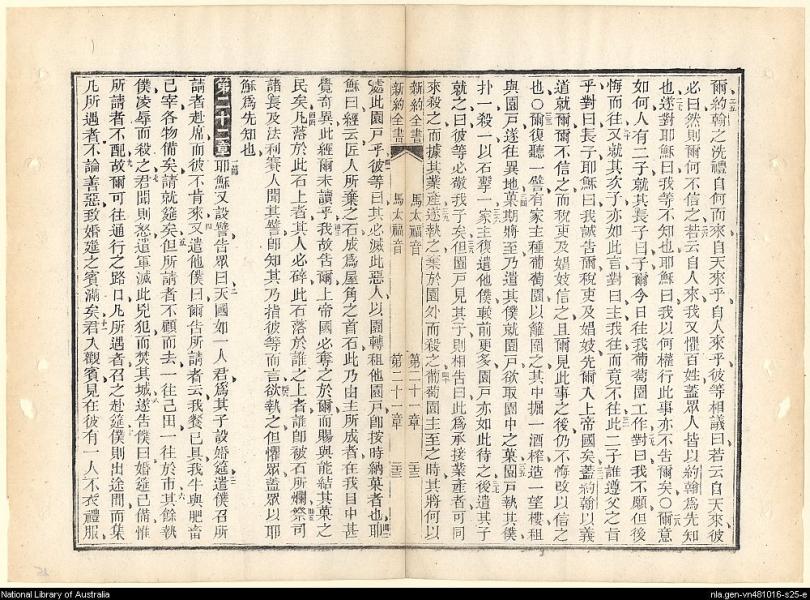 爾約翰之洗禮自何而來自天來乎自人來乎彼等相議曰若云自天來彼
必曰然則爾何不信之若云自人來我又懼百姓蓋眾人皆以約翰為先知
也遂對耶穌曰我等不知也耶穌曰我以何權行此事亦不告爾矣〇爾意
如何人有二子就其長子曰子爾今日往我葡萄園工作對曰我不願但後
悔而往又就其次子亦如此言對曰主我往而竟不往此二子誰遵父之旨
乎對曰長子耶穌曰我誠告爾稅吏及娼妓先爾入上帝國矣蓋約翰以義
道就爾爾不信之而稅吏及娼妓信之且爾見此事之後仍不悔改以信之
也〇爾復聽一譬有家主種葡萄園以籬圍之其中掘一酒榨造一望樓租
與園戶遂往異地菓期將至乃遣其僕就園戶欲取園中之菓園戶執其僕
扑一殺一以石擊一家主復遣他僕較前更多園戶亦如此待之後遣其子
就之曰彼等必敬我子矣但園戶見其子則相告曰此為承接業產者可同
來殺之而據其業產遂執之棄於園外而殺之葡萄園主至之時其將何以
新約全書 馬太福音 第二十一章
新約全書 馬太福音 第二十一章
處此園戶乎彼等曰其必滅此惡人以園轉租他園戶卽按時納菓者也耶
穌曰經云匠人所棄之石成為屋角之首石此乃由主所成者在我目中甚
覺奇異此經爾未讀乎我故告爾上帝國必奪之於爾而賜與能結其菓之
民矣凡落於此石上者其人必碎此石落於誰之上者誰卽被石所爛祭司
諸長及法利賽人聞其譬卽知其乃指彼等而言欲執之但懼眾蓋眾以耶
穌為先知也
第二十二章 耶穌又設譬告眾曰天國如一人君為其子設婚筵遣僕召所
請者赴席而彼不肯來又遣他僕曰爾告所請者云我餐已具我牛與肥畜
已宰各物備矣請就筵矣但所請者不顧而去一往己田一往於市其餘執
僕凌辱而殺之君聞則怒遣軍滅此兇犯而焚其城遂告僕曰婚筵已備惟
所請者不配故爾可往通行之路口凡所遇者召之赴筵僕則出途間而集
凡所遇者不論善惡致婚筵之賓滿矣君入觀賓見在彼有一人不衣禮服
National Library of Australia
nla.gen-vn481016-s25-e